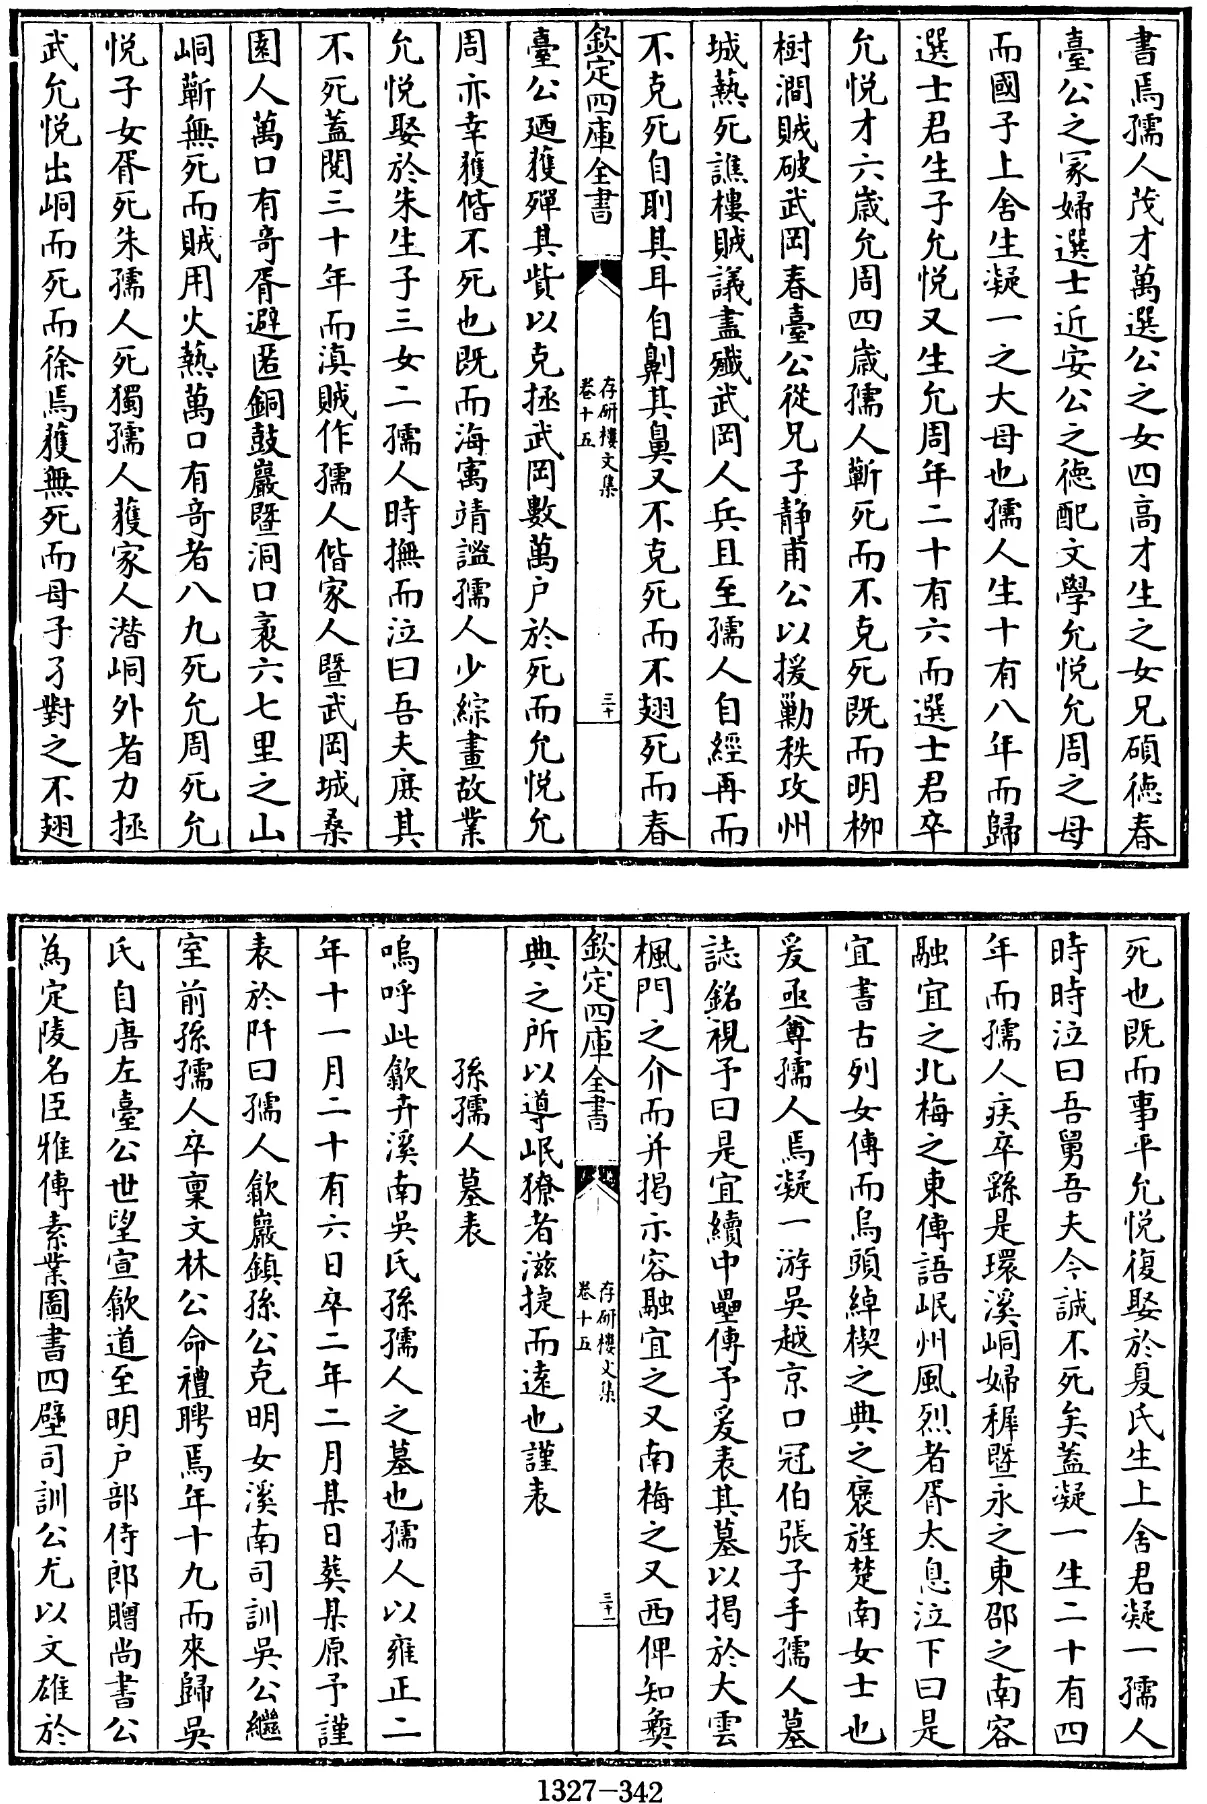 書焉孺人茂才萬選公之女四高才生之女兄碩徳春
臺公之冢婦選士近安公之徳配文學允悦允周之母
而國子上舍生凝一之大母也孺人生十有八年而歸
選士君生子允悦又生允周年二十有六而選士君卒
允悦才六歳允周四歳孺人蘄死而不克死既而明柳
樹澗賊破武岡春臺公從兄子静甫公以援勦秩攻州
城爇死譙樓賊議盡殲武岡人兵且至孺人自經再而
不克死自刵其耳自劓其鼻又不克死而不翅死而春
欽定四庫全書
存研樓文集
卷十五
三十
臺公廼獲殫其貲以克拯武岡數萬户於死而允悦允
周亦幸獲偕不死也既而海㝢靖謐孺人少綜畫故業
允悦娶於朱生子三女二孺人時撫而泣曰吾夫庶其
不死蓋閲三十年而滇賊作孺人偕家人暨武岡城桑
園人萬口有奇胥避匿銅鼓巖暨洞口袤六七里之山
峒蘄無死而賊用火爇萬口有奇者八九死允周死允
悦子女胥死朱孺人死獨孺人獲家人潛峒外者力拯
武允悦出峒而死而徐焉獲無死而母子孑對之不翅
死也既而事平允悦復娶於夏氏生上舍君凝一孺人
時時泣曰吾舅吾夫今誠不死矣蓋凝一生二十有四
年而孺人疾卒繇是環溪峒婦穉暨永之東邵之南容
融宜之北梅之東傳語岷州風烈者胥太息泣下曰是
宜書古列女傳而烏頭綽楔之典之褒旌楚南女士也
爰亟尊孺人焉凝一游吳越京口冠伯張子手孺人墓
誌銘視予曰是宜續中壘傳予爰表其墓以揭於大雲
楓門之介而并揭示容融宜之又南梅之又西俾知彜
欽定四庫全書
存研樓文集
卷十五
三十一
典之所以導岷獠者滋捷而遠也謹表
孫孺人墓表
嗚呼此歙卉溪南吳氏孫孺人之墓也孺人以雍正二
年十一月二十有六日卒二年二月某日葬某原予謹
表於阡曰孺人歙巖鎮孫公克明女溪南司訓吳公繼
室前孫孺人卒稟文林公命禮聘焉年十九而來歸吳
氏自唐左臺公世望宣歙道至明户部侍郎贈尚書公
為定陵名臣雅傳素業圖書四壁司訓公尤以文雄於
1327-342